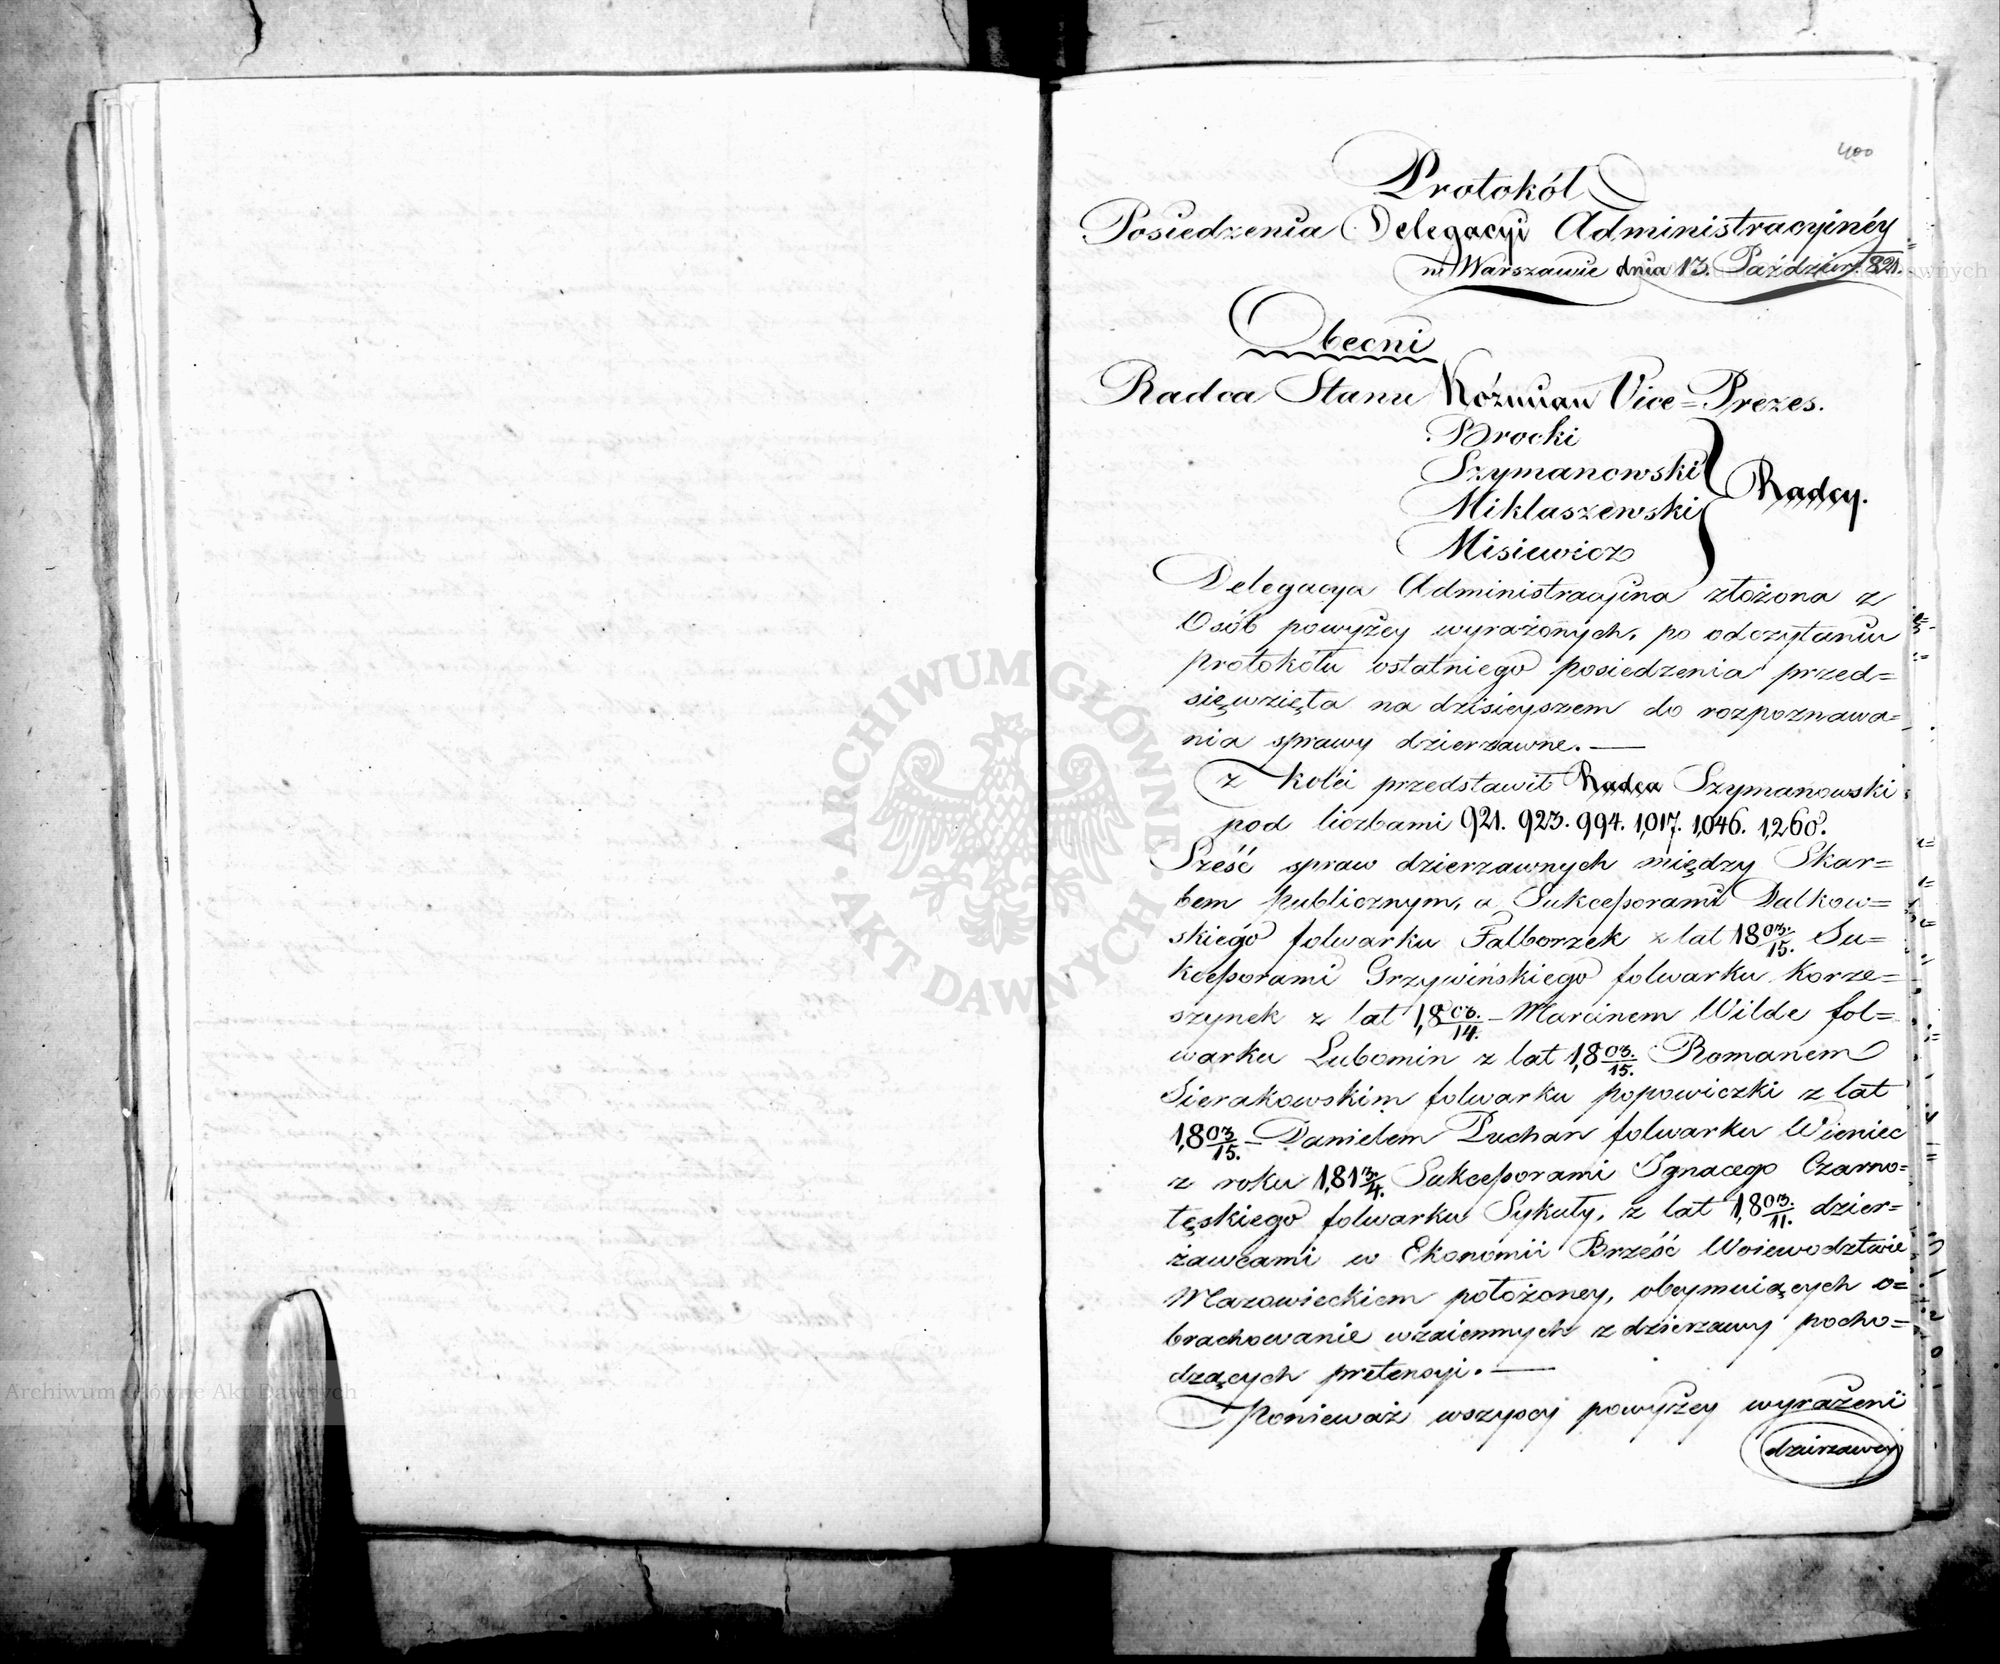 400
Protokół
Posiedzenia Delegacyi Administracyinéy
w Warszawie dnia 13. Paździer. 821.
Obecni
Radca Stanu Kózmian Vice=Prezes.
Brocki
Szymanowski
Miklaszewski
Misiewicz
Radcy.
Delegacya Administracyina złożona z
Osób powyżey wyrażonych, po odczytaniu
protokółu ostatniego posiedzenia przed=
sięwzięła na dzisieyszem do rozpoznawa=
nia sprawy dzierzawne. —
Z kolei przedstawił Radca Szymanowski
pod liczbami 921. 923. 994. 1,017. 1,046. 1,260.
Sześć spraw dzierzawnych między Skar=
bem publicznym, a Sukcessorami Dalkow=
skiego folwarku Falborzek z lat 18 03/15. Su=
kcessorami Grzywińskiego folwarku Korze=
szynek z lat 1,8 03/14. – Marcinem Wilde fol=
warku Lubomin z lat 1,8 03/15. Romanem
Sierakowskim folwarku popowiczki z lat
1,8 03/15. – Danielem Puchan folwarku Wieniec
z roku 1,81 3/4. Sukcessorami Ignacego Czarno=
łęskiego folwarku Sykuły, z lat 1,8 03/11. dzier=
żawcami w Ekonomii Brześć Woiewodztwie
Mazowieckiem położoney, obeymuiących o=
brachowanie wzaiemnych z dzierzawy pocho=
dzących pretensyi. —
Ponieważ wszyscy powyżey wyrażeni
dzierzawcy
ARCHIWUM GŁÓWNE AKT DAWNYCH
Archiwum Główne Akt Dawnych